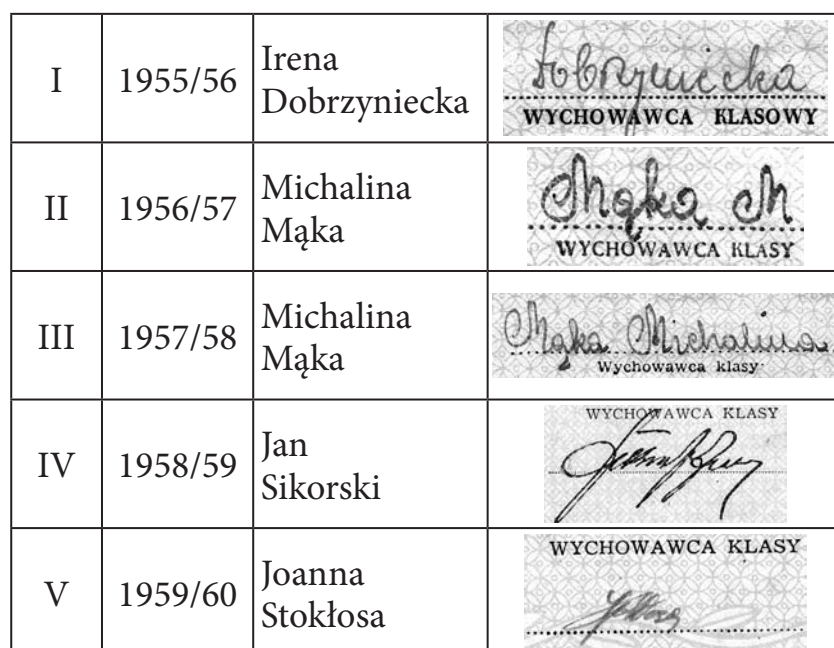 I
1955/56
Irena
Dobrzyniecka
Dobrzyniecka
WYCHOWAWCA KLASOWY
II
1956/57
Michalina
Mąka
Mąka M
WYCHOWAWCA KLASY
III
1957/58
Michalina
Mąka
Mąka Michalina
Wychowawca klasy
IV
1958/59
Jan
Sikorski
WYCHOWAWCA KLASY
V
1959/60
Joanna
Stokłosa
WYCHOWAWCA KLASY